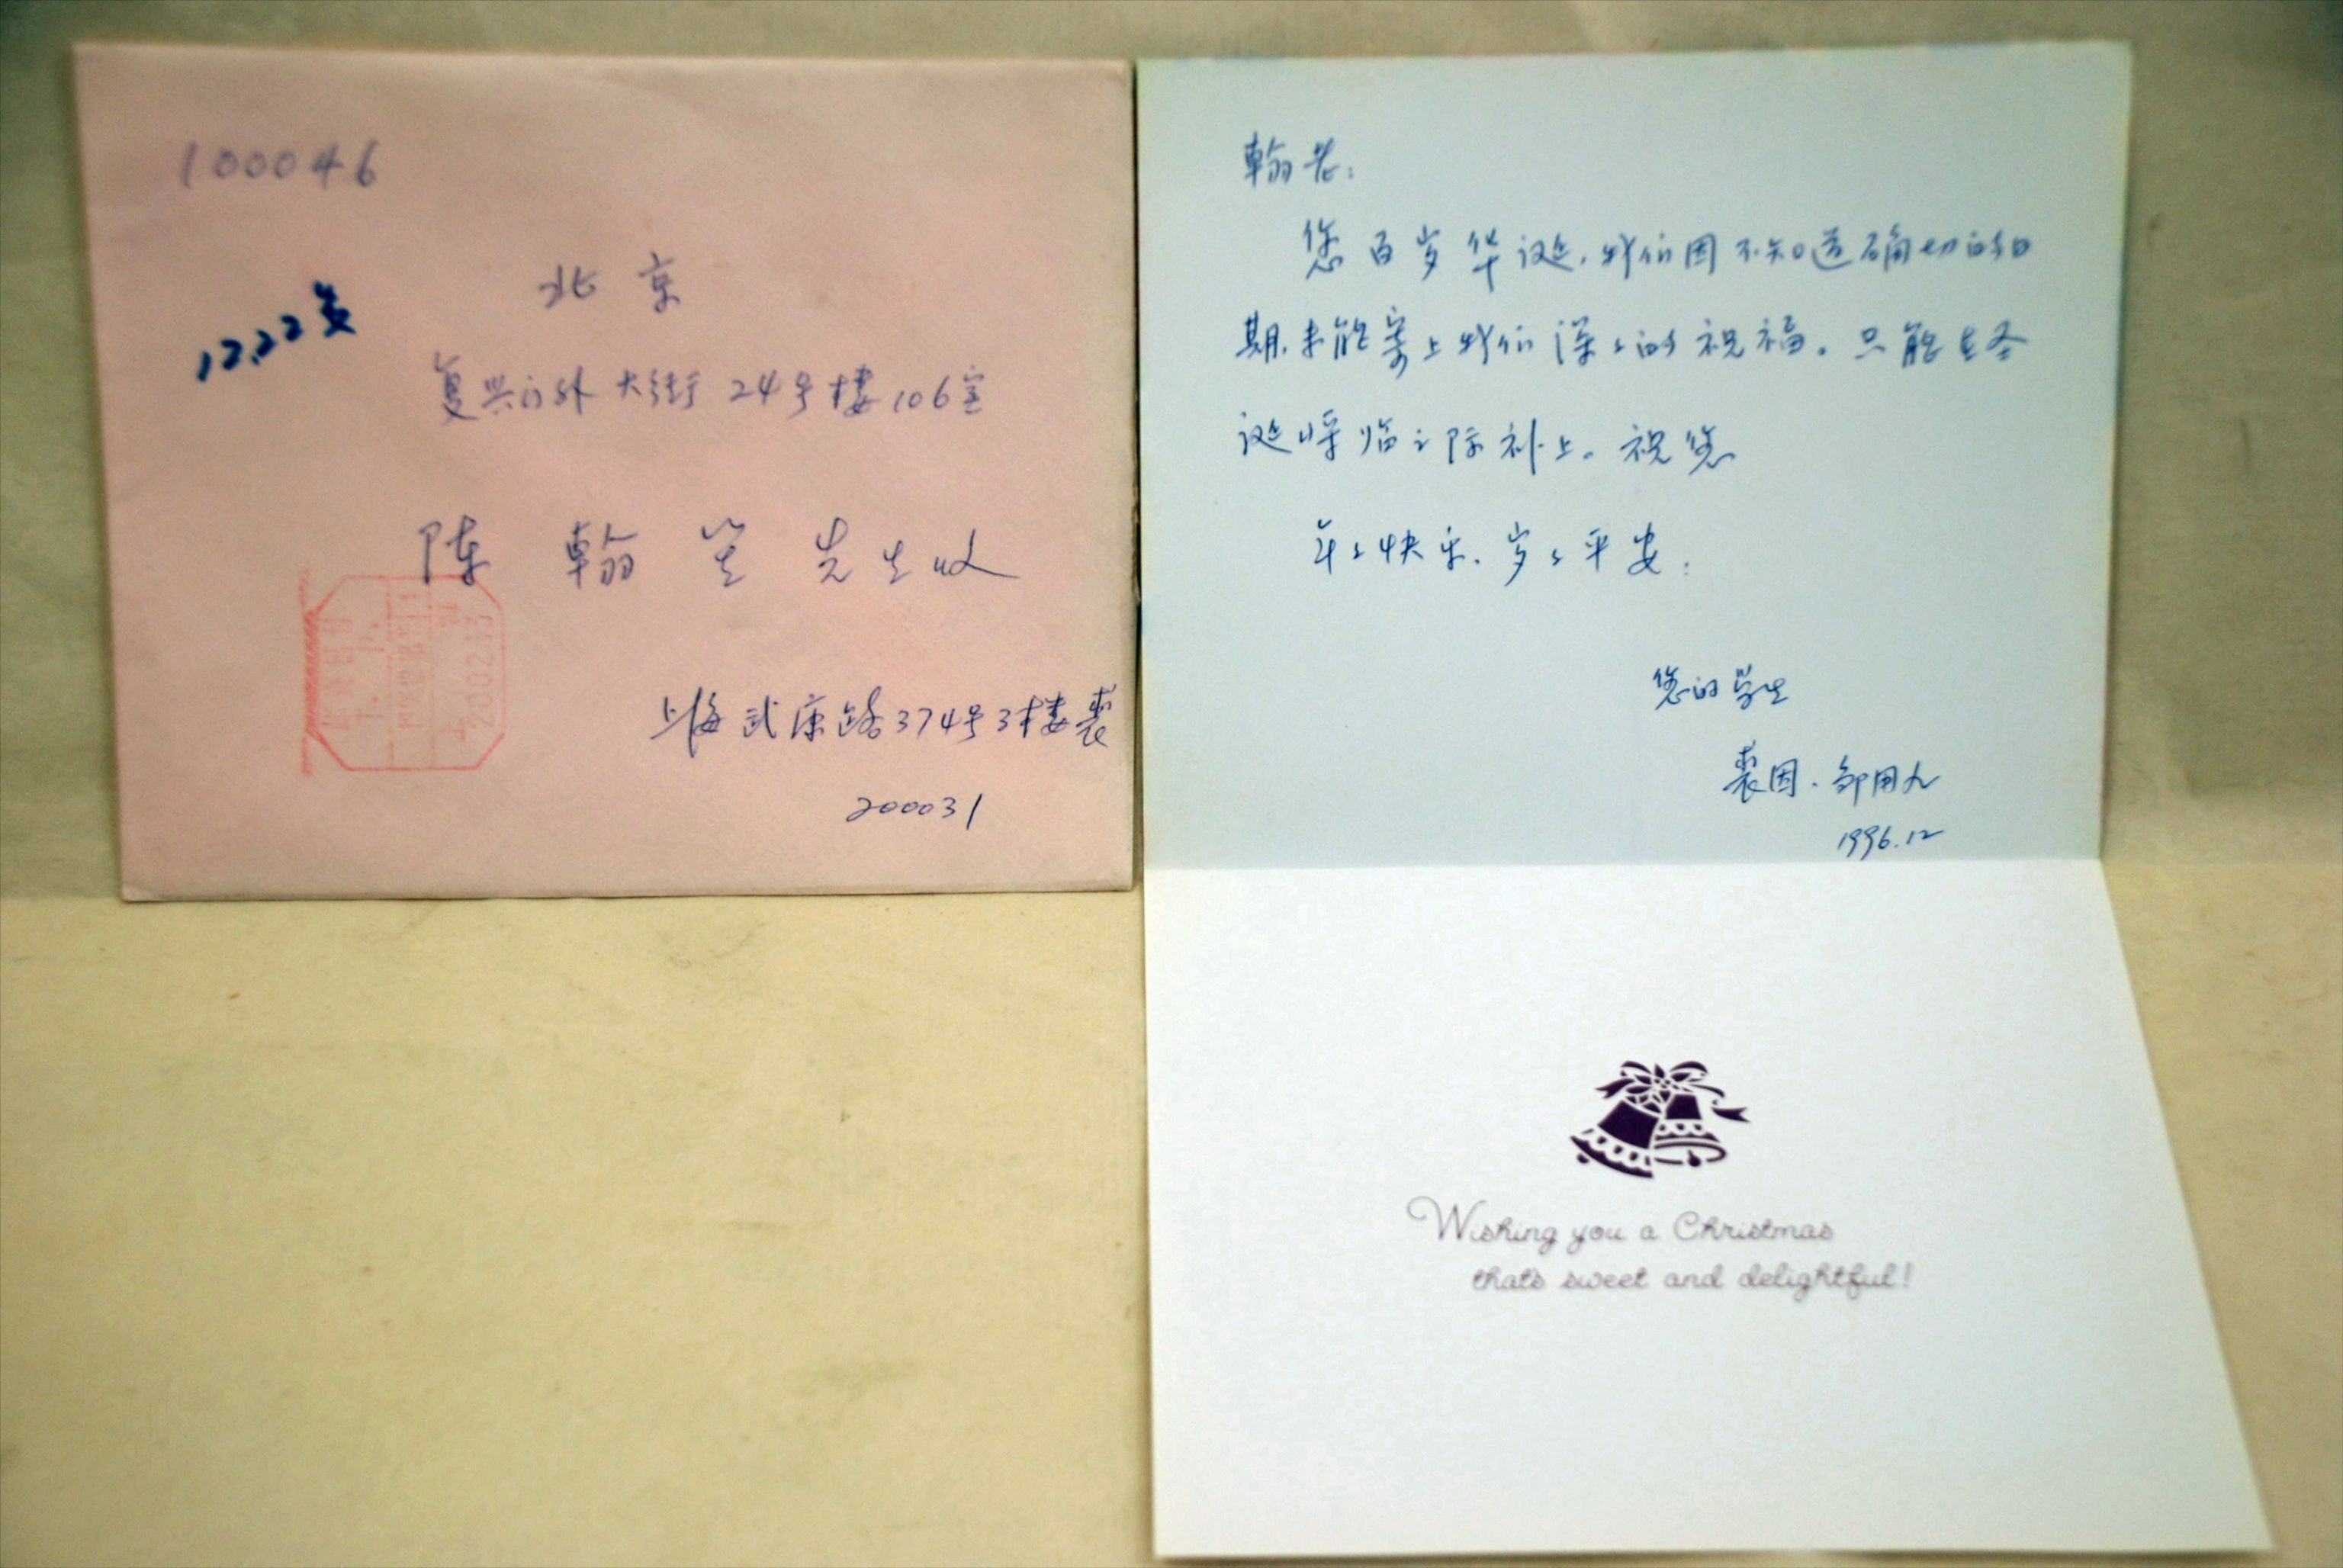 100046
北京
12.22复
复兴门外大街24号楼106室
陈翰笙先生收
上海武康路374号3楼裘
200031
200213
翰老：
您百岁华诞，我们因不知道确切的日
期，未能寄上我们深々的祝福。只能在圣
诞将临之际补上。祝您
年々快乐、岁々平安！
您的学生
裘因、邹用九
1996.12
Wishing you a Christmas
that's sweet and delightful!